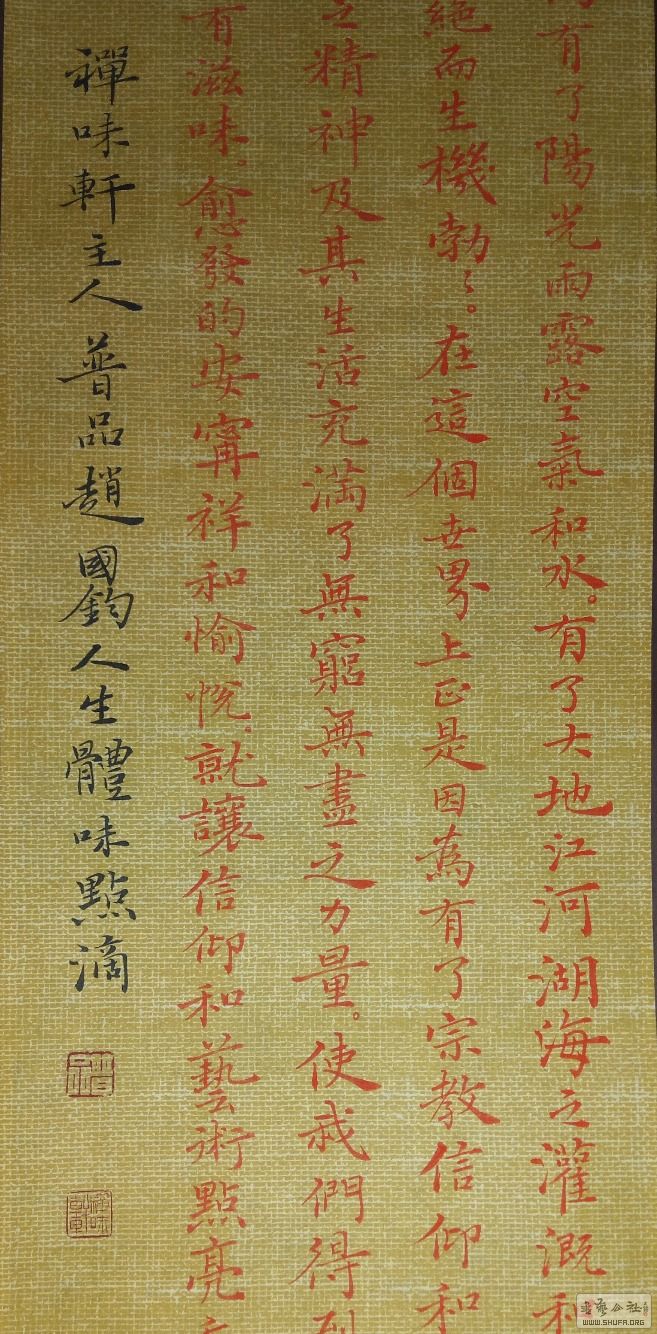 有了陽光雨露空氣和水。有了大地江河湖海之灌溉和
絕而生機勃〻。在這個世界上正是因為有了宗教信仰和
之精神及其生活充滿了無窮無盡之力量。使我們得到
有滋味，愈發的安寧祥和愉悅，就讓信仰和藝術點亮
禪味軒主人普品趙國鈞人生體味點滴
WWW.SHUFA.ORG